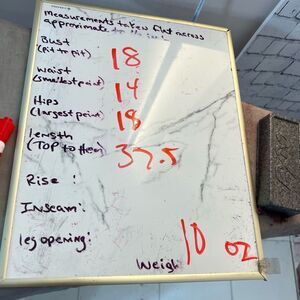 Measurements taken flat across
approximate to the inch
Bust
(pit to pit) 18
Waist
(smallest point) 14
Hips
(largest point) 18
Length
(TOP to Hem) 37.5
Rise:
Inseam:
leg opening:
Weight 10 oz